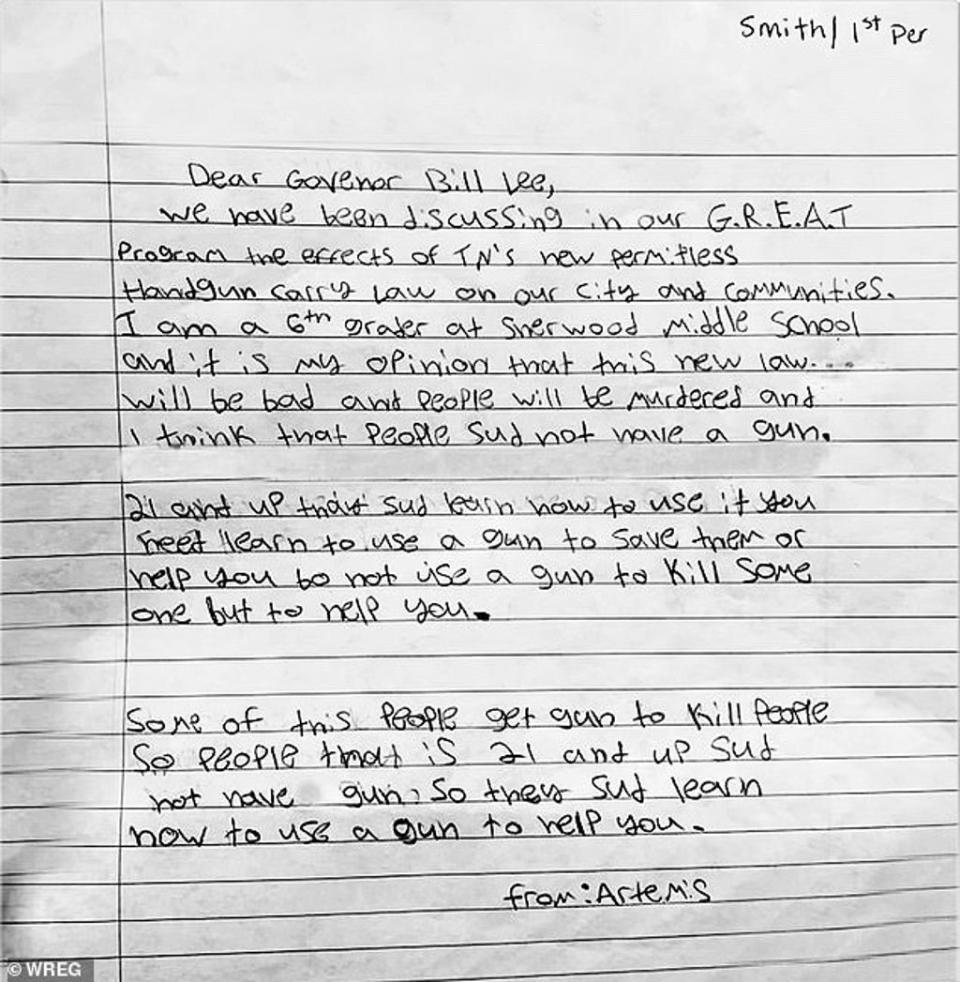 Smith/ 1st Per
Dear Govenor Bill Lee,
we have been discussing in our G.R.E.A.T
Program the effects of TN's new permitless
Handgun carry Law on our city and communities.
I am a 6th grader at Sherwood Middle School
and it is my opinion that this new law....
will be bad and people will be murdered and
I think that people sud not have a gun.
21 and up that sud learn how to use it you
need learn to use a gun to save them or
help you to not use a gun to kill some
one but to help you.
Some of this people get gun to kill people
So people that is 21 and up sud
not have gun, so they sud learn
how to use a gun to help you.
from: Artemis
© WREG